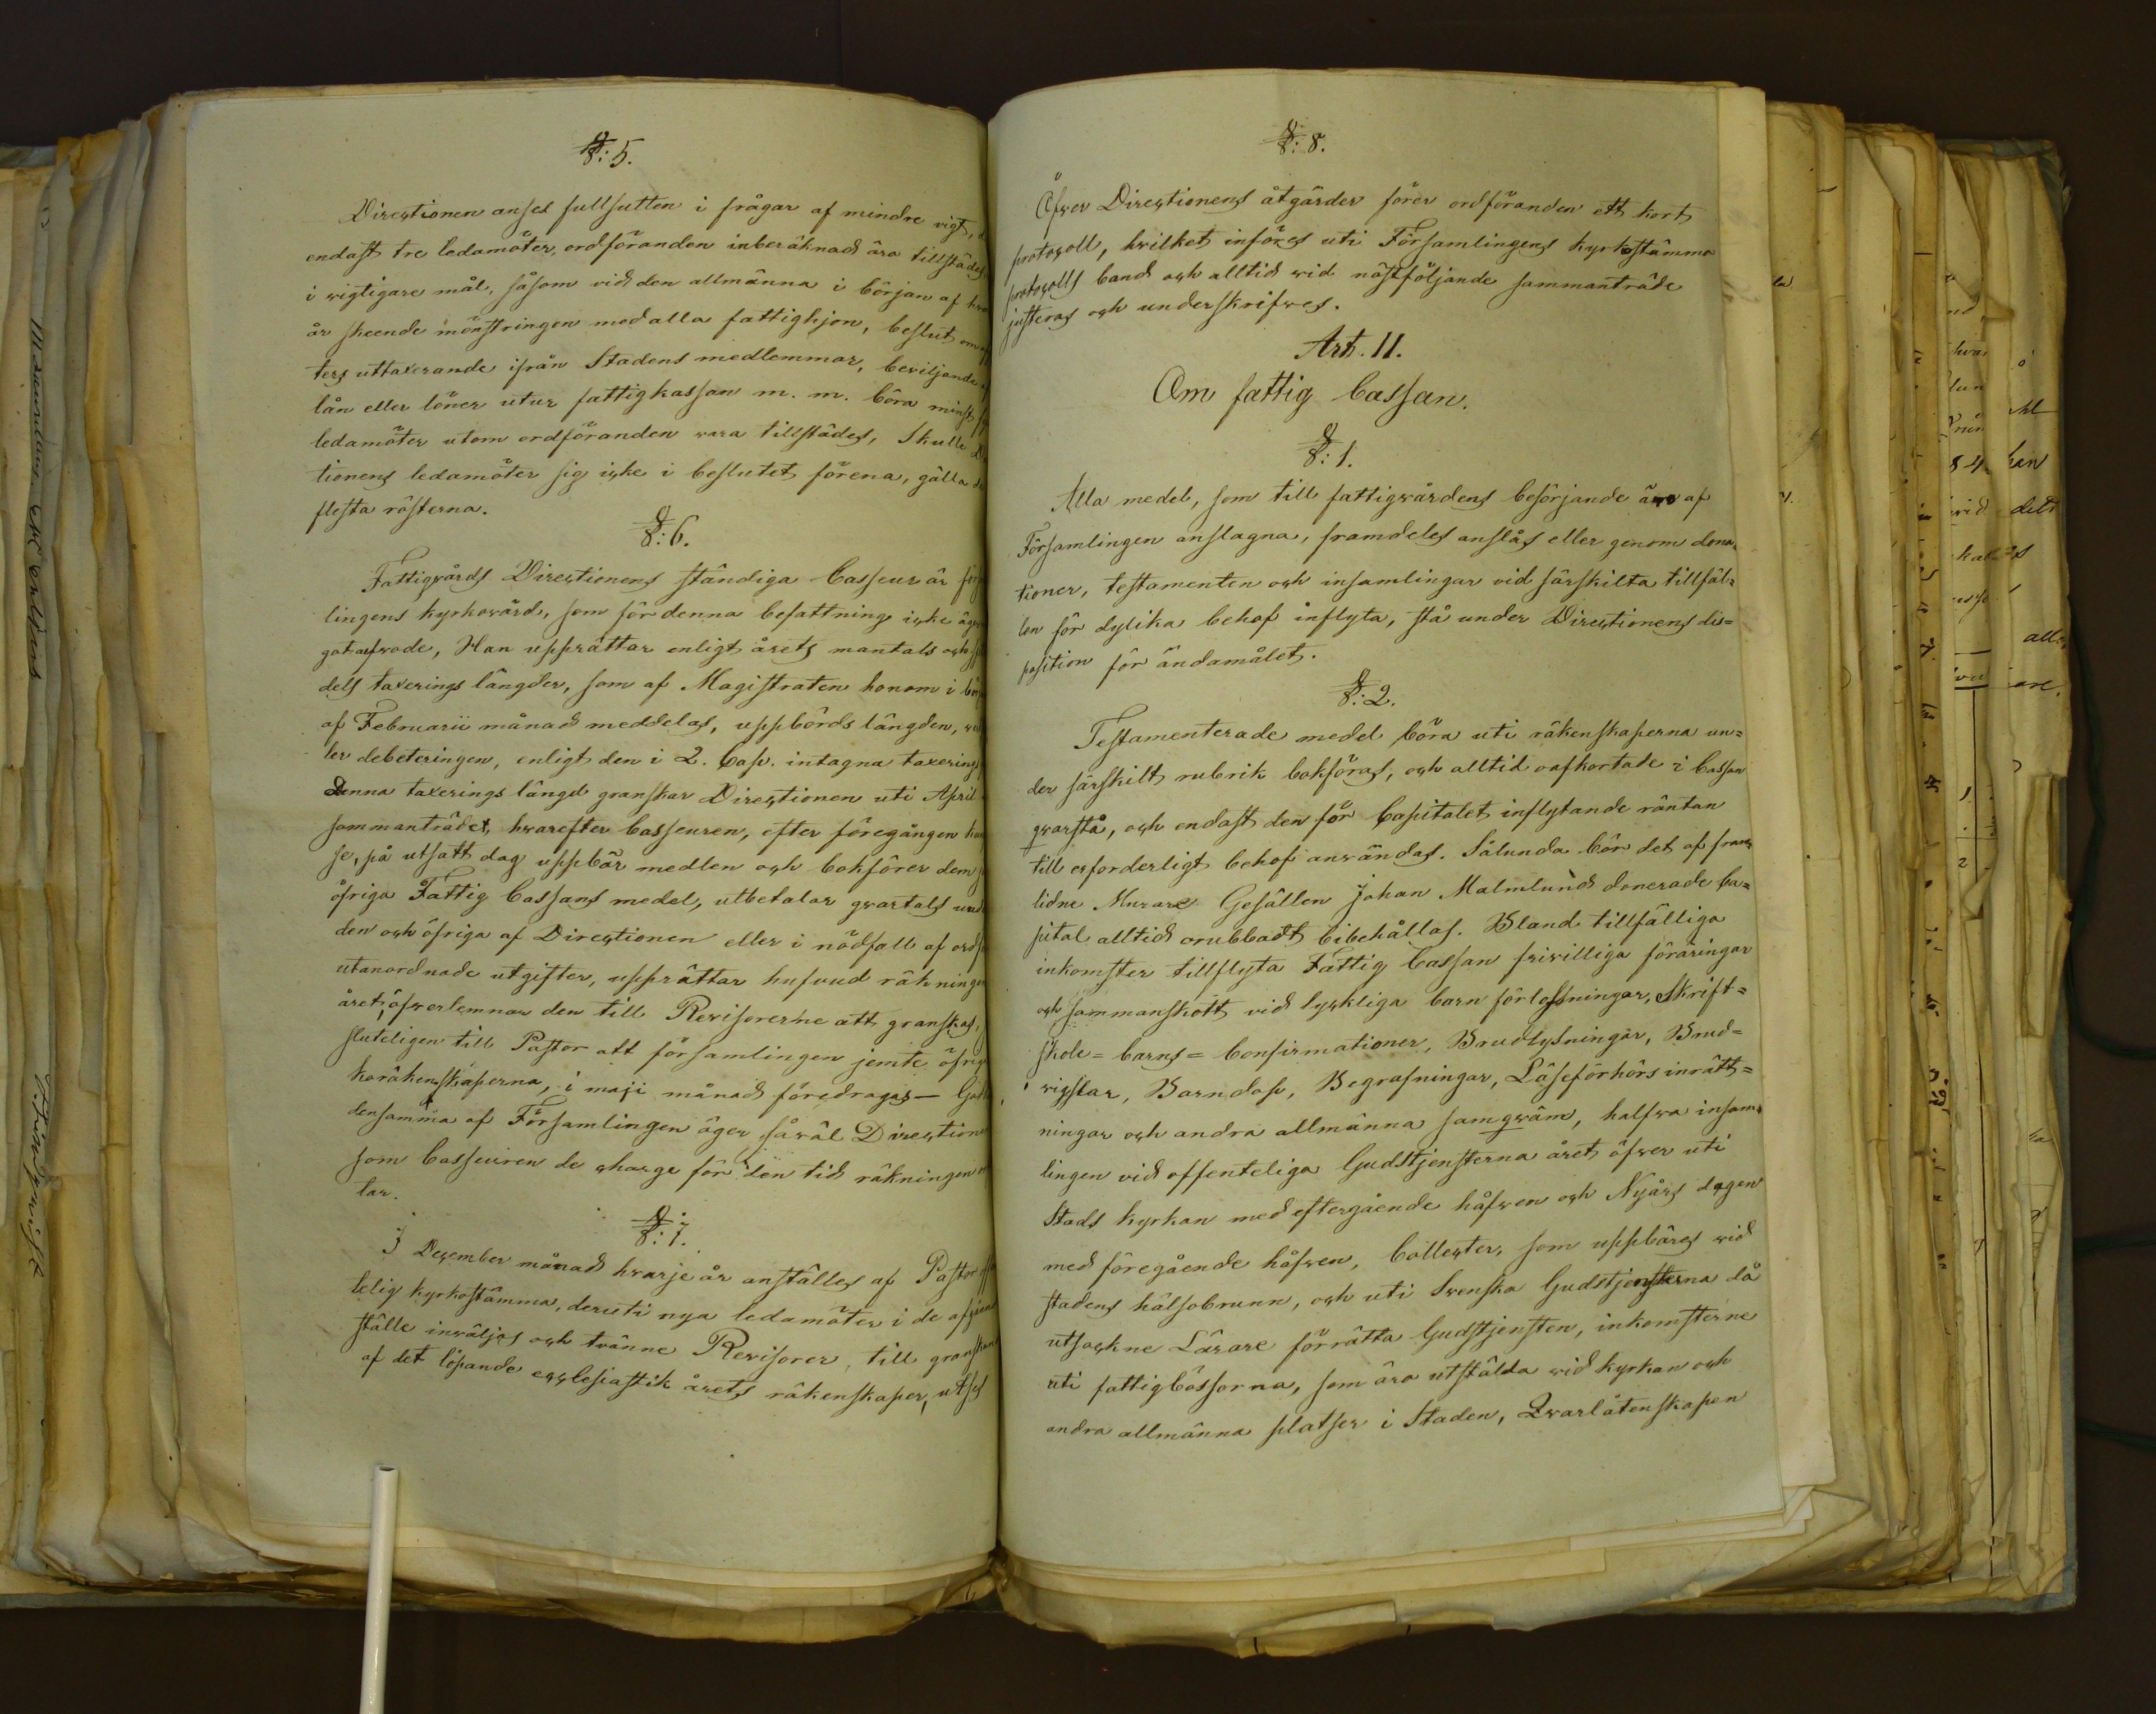 §: 5.
Directionen anses fullsutten i frågar af mindre vigt,
endast tre ledamöter, ordföranden inberäknad äro tillstädes
i wigtigare mål, såsom vid den allmänna i början af
år skeende mönstringen med alla fattighjon, beslut om
ters uttaxerande ifrån Stadens medlemmar, beviljande
lån eller löner utur fattigkassan m. m. böra minst
ledamöter utom ordföranden vara tillstädes, Skulle
tionens ledamöter sig icke i beslutet förena, gälla
flesta rösterna.
§: 6.
Fattigvårds Directionens ständiga Casseur är
lingens kyrkovärd, som för denna befattning icke
got arfvode, Han upprättar enligt årets mantals och
dels taxerings längder, som af Magistraten honom i
af Februarii månad meddelas, uppbörds längden,
ler debeteringen, enligt den i 2. Cap. intagna taxerings
Denna taxerings längd granskar Directionen uti April
sammanträdet, hwarefter Casseuren, efter föregången
se, på utsatt dag uppbär medlen och bokförer dem
öfriga Fattig Cassans medel, utbetalar qvartals
den och öfriga af Directionen eller i nödfall af
utanordnade utgifter, upprättar hufvud räkningen
året, öfverlemnar den till Revisorerne att granskas,
sluteligen till Pastor att församlingen jemte
koräkenskaperna, i maji månad föredragas —
densamma af Församlingen äger såväl Direction
som Casseuren de charge för den tid räkningen
tar.
§: 7.
I December månad hvarje år anställes af Pastor
telig kyrkostämma, deruti nya ledamöter i de
ställe inväljas och tvänne Revisorer, till
af det löpande ecclesiastik årets räkenskaper, utses
§: 8.
Öfver Directionens åtgärder förer ordföranden ett kort
protocoll, hvilket införes uti Församlingens kyrkostämma
protocolls band och alltid vid nästföljande sammanträde
justeras och underskrifves.
Art. II.
Om fattig Cassan.
§: 1.
Alla medel, som till fattigvårdens besörjande äro af
Församlingen anslagna, framdeles anslås eller genom dona-
tioner, testamenten och insamlingar vid särskilta tillfäl=
len för dylika behof inflyta, stå under Directionens dis=
position för ändamålet.
§: 2.
Testamenterade medel böra uti räkenskaperna un=
der särskilt rubrik bokföras, och alltid oafkortade i Cassan
qvarstå, och endast den för Capitalet inflytande räntan
till erforderligt behof användas. Sålunda bör det af fram-
lidne Murare Gesällen Johan Malmlund donerade Ca=
pital alltid orubbadt bibehållas. Bland tillfälliga
inkomster tillflyta Fattig Cassan frivilliga föräringar
och sammanskott vid lyckliga barn förlossningar, Skrift=
skole=barns=Confirmationer, Brudlysningar, Brud=
vigslar, Barndop, Begrafningar, Läseförhörs inrätt=
ningar och andra allmänna samqväm, halfva insam-
lingen vid offenteliga Gudstjensterna året öfver uti
Stads kyrkan med eftergående håfven och Nyårs dagen
med föregående håfven, Collecter, som uppbäres vid
stadens hälsobrunn, och uti Svenska Gudstjensterna då
utsockne Lärare förrätta Gudstjensten, inkomsterne
uti fattigbössorna, som äro utstälda vid kyrkan och
andra allmänna platser i Staden, Qvarlåtenskapen